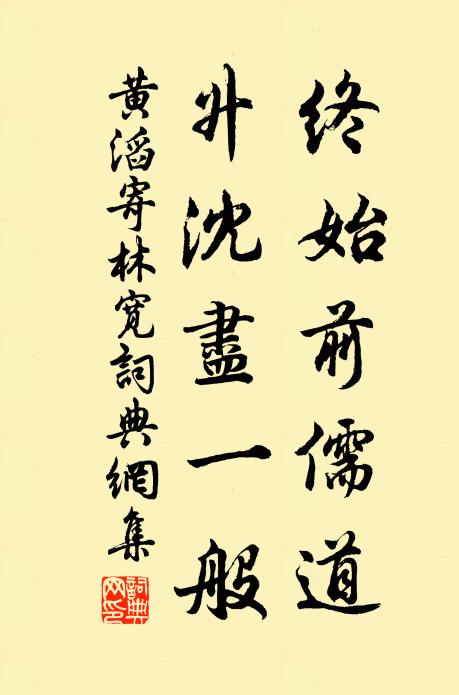 終始前儒道
升沈盡一般
黃滔寄林寬詞典網集
詞典网印